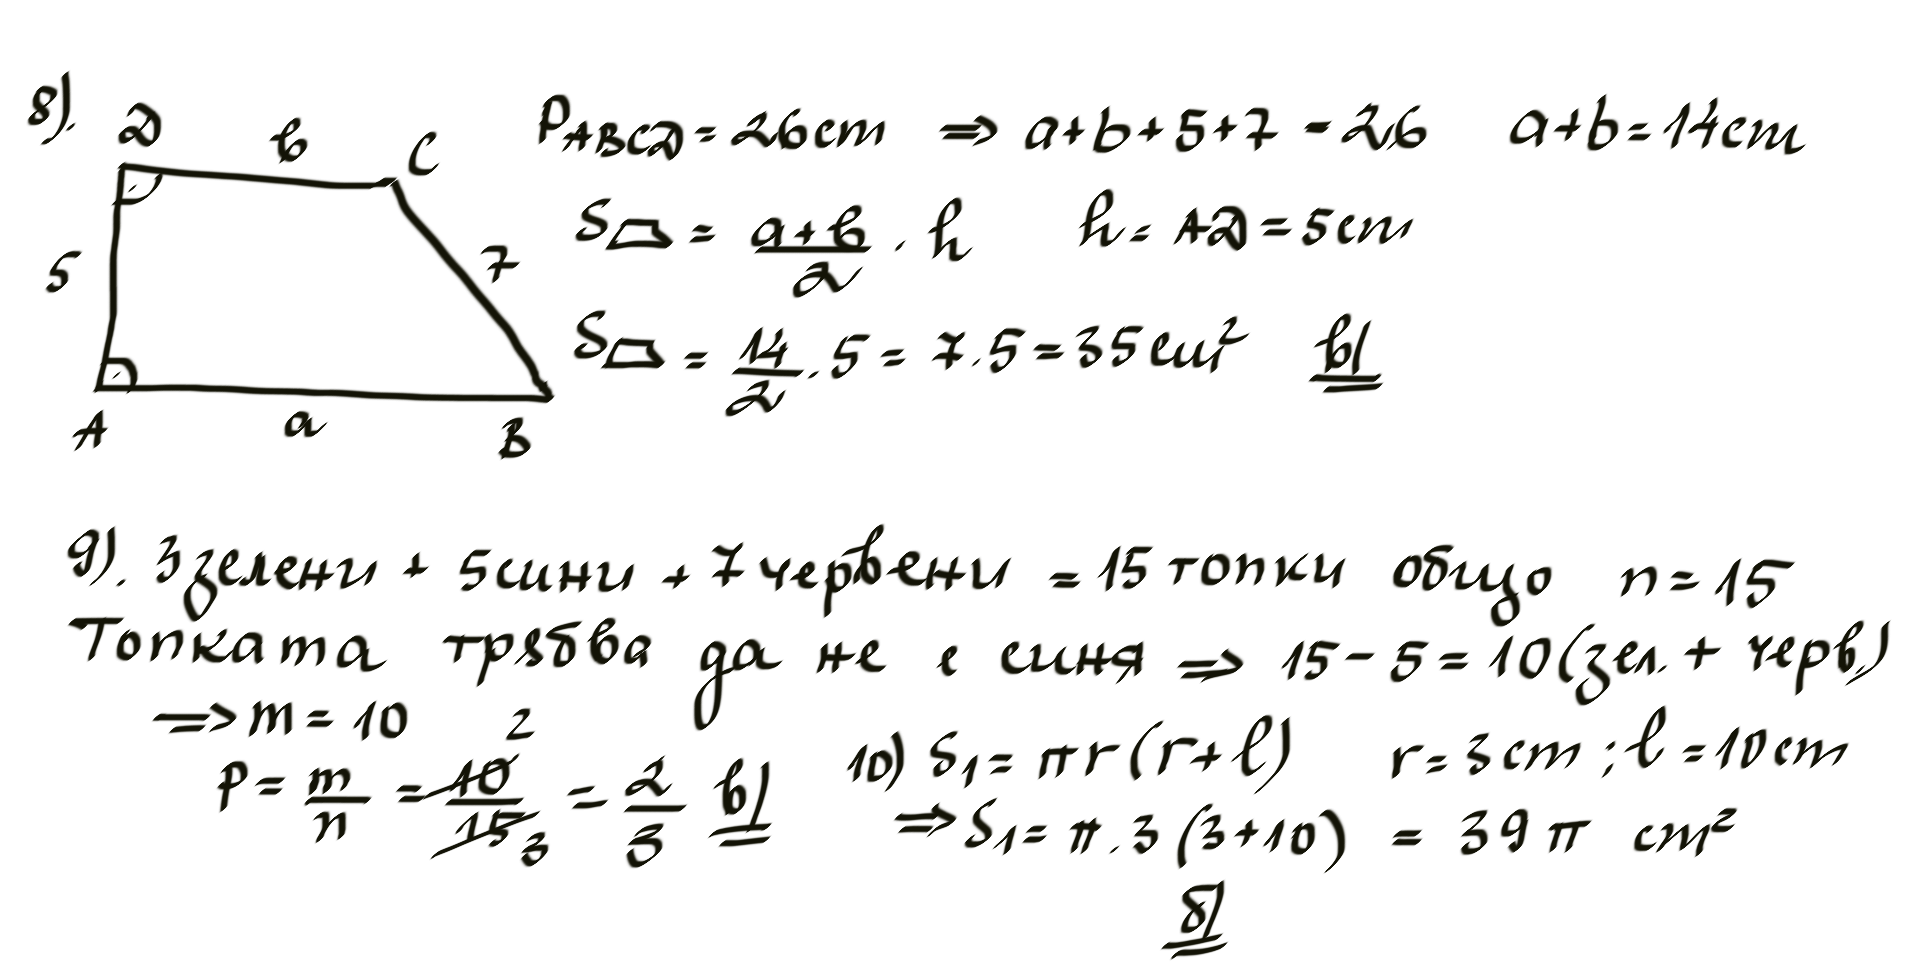 8).
D b C
5 7
A a B
P_ABCD = 26cm ⇒ a+b+5+7 = 26 a+b=14cm
S▱ = (a+b)/2 . h h = AD = 5cm
S▱ = 14/2 . 5 = 7.5 = 35 cm² в)
9). 3 зелени + 5 сини + 7 червени = 15 топки общо n = 15
Топката трябва да не е синя ⇒ 15 - 5 = 10 (зел. + черв.)
⇒ m = 10
P = m/n = 10/15 2 3 = 2/3 в)
10) S₁ = πr(r+l) r = 3cm ; l = 10cm
⇒ S₁ = π.3(3+10) = 39π cm²
б)